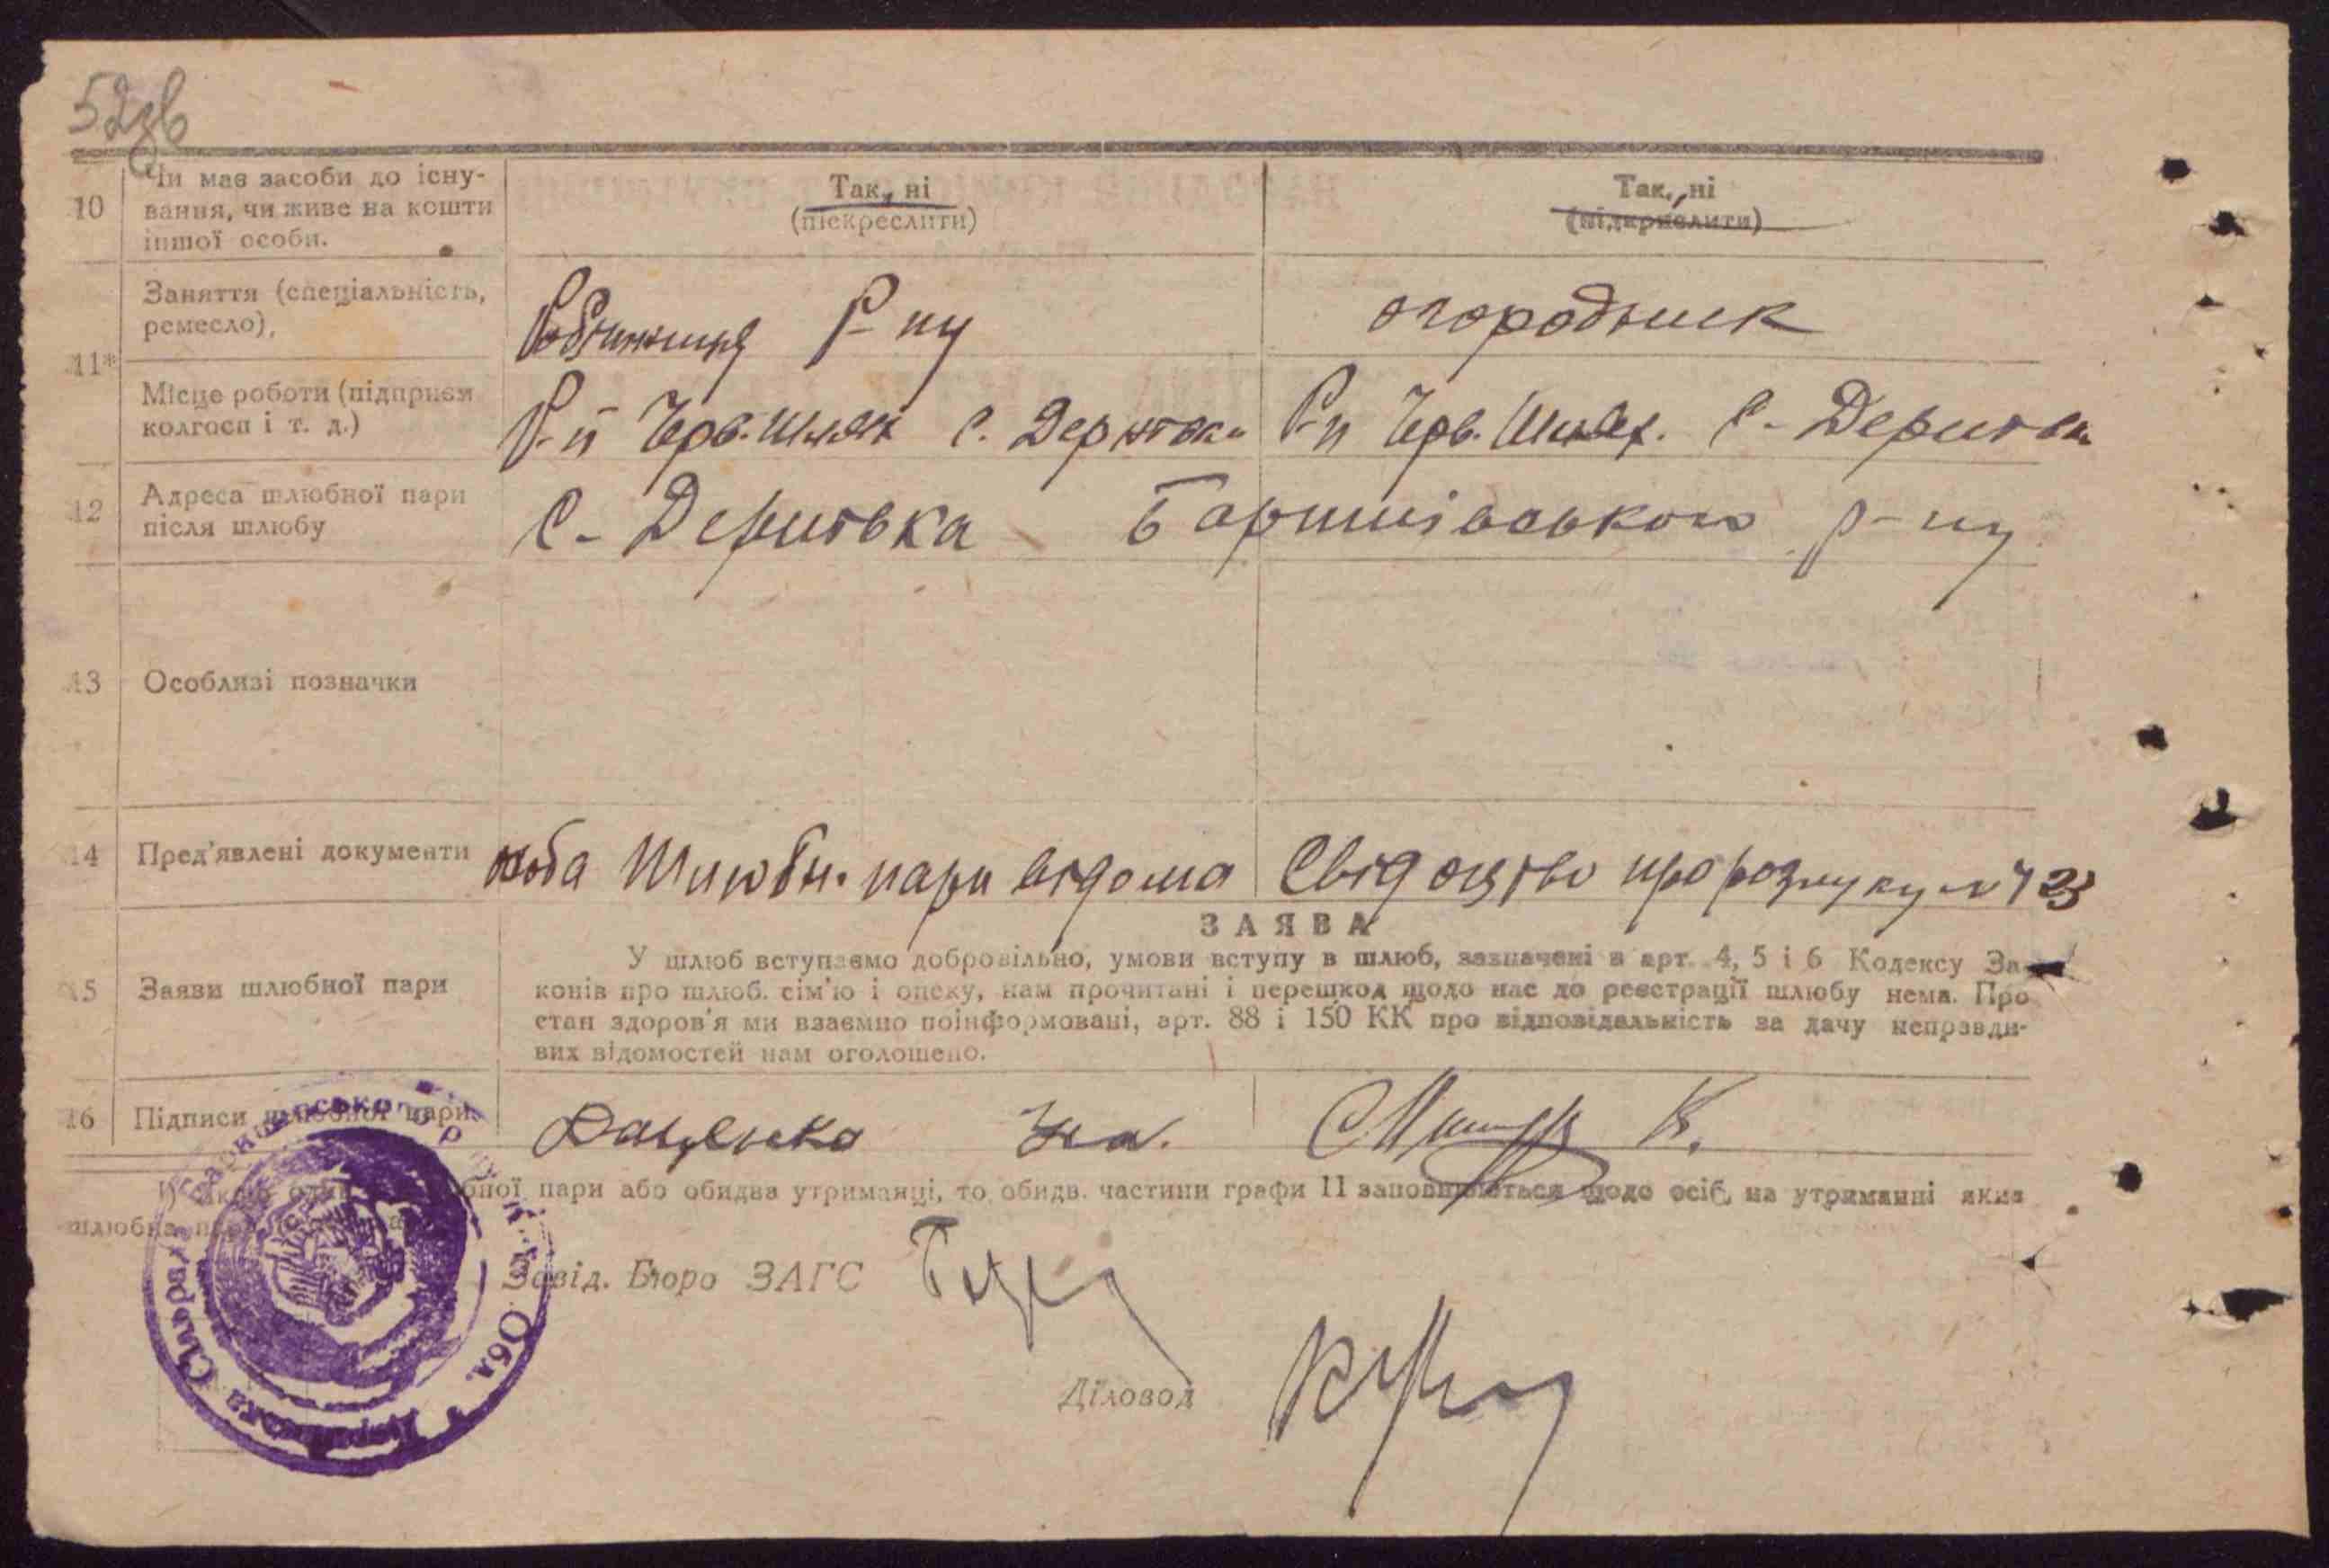 52зв
10 Чи має засоби до існу-
вання, чи живе на кошти
іншої особи.
Так, ні
(піекреслити)
Так, ні
(підкрислити)
11*
Заняття (спеціальність,
ремесло),
Р-пу
огородник
Місце роботи (підприєм
колгосп і т. д.)
Р-п Черв. Шлях с. Дернівка
Р-п Черв. Шлях. С-
12 Адреса шлюбної пари
після шлюбу
С- Баришівського р-ну
13 Особливі позначки
14 Пред'явлені документи
особа Шлюбн. пари відома
Свідоцтво про розлуку № 23
ЗАЯВА
15 Заяви шлюбної пари
У шлюб вступаємо добровільно, умови вступу в шлюб, зазначені в арт. 4, 5 і 6 Кодексу За-
конів про шлюб. сім'ю і опеку, нам прочитані і перешкод щодо нас до реєстрації шлюбу нема. Про
стан здоров'я ми взаємно поінформовані, арт. 88 і 150 КК про відповідальність за дачу неправди-
вих відомостей нам оголошено.
16 Підписи шлюбної пари
Даценко К.
1) Якщо один шлюбної пари або обидва утриманці, то обидв. частини графи 11 заповнюються щодо осіб, на утриманні яких
шлюбна пара
Завід. Бюро ЗАГС
Діловод